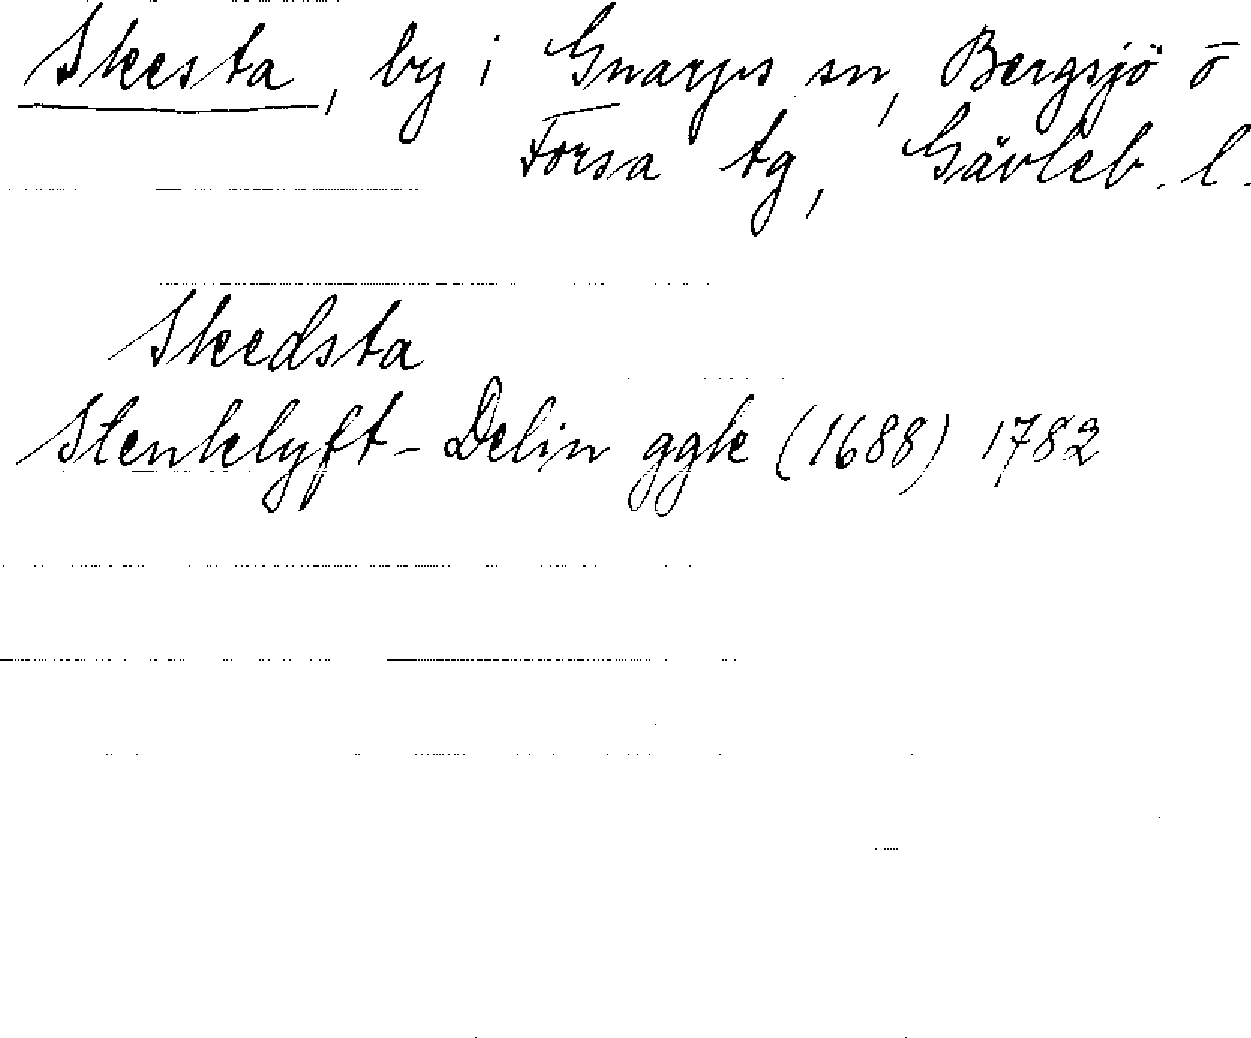 Skesta, by i Gnarps sn, Bergsjö o
Forsa tg, Gävleb. l.
Skedsta
Stenklyft-Delin ggk (1688) 1782